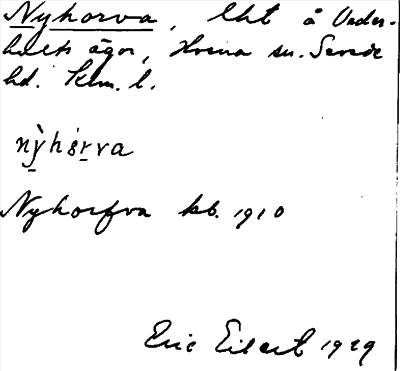 Nyhorva, lht å Vader-
hults ägor, Hvena sn. Sevede
hd. Klm. l.
nỳhórva
Nyhorfva kb. 1910
Eric Eilert 1929